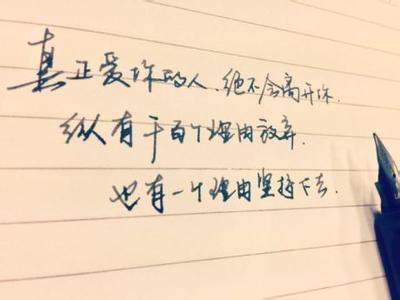 真正爱你的人.绝不会离开你.
纵有千百个理由放弃.
也有一个理由坚持下去.